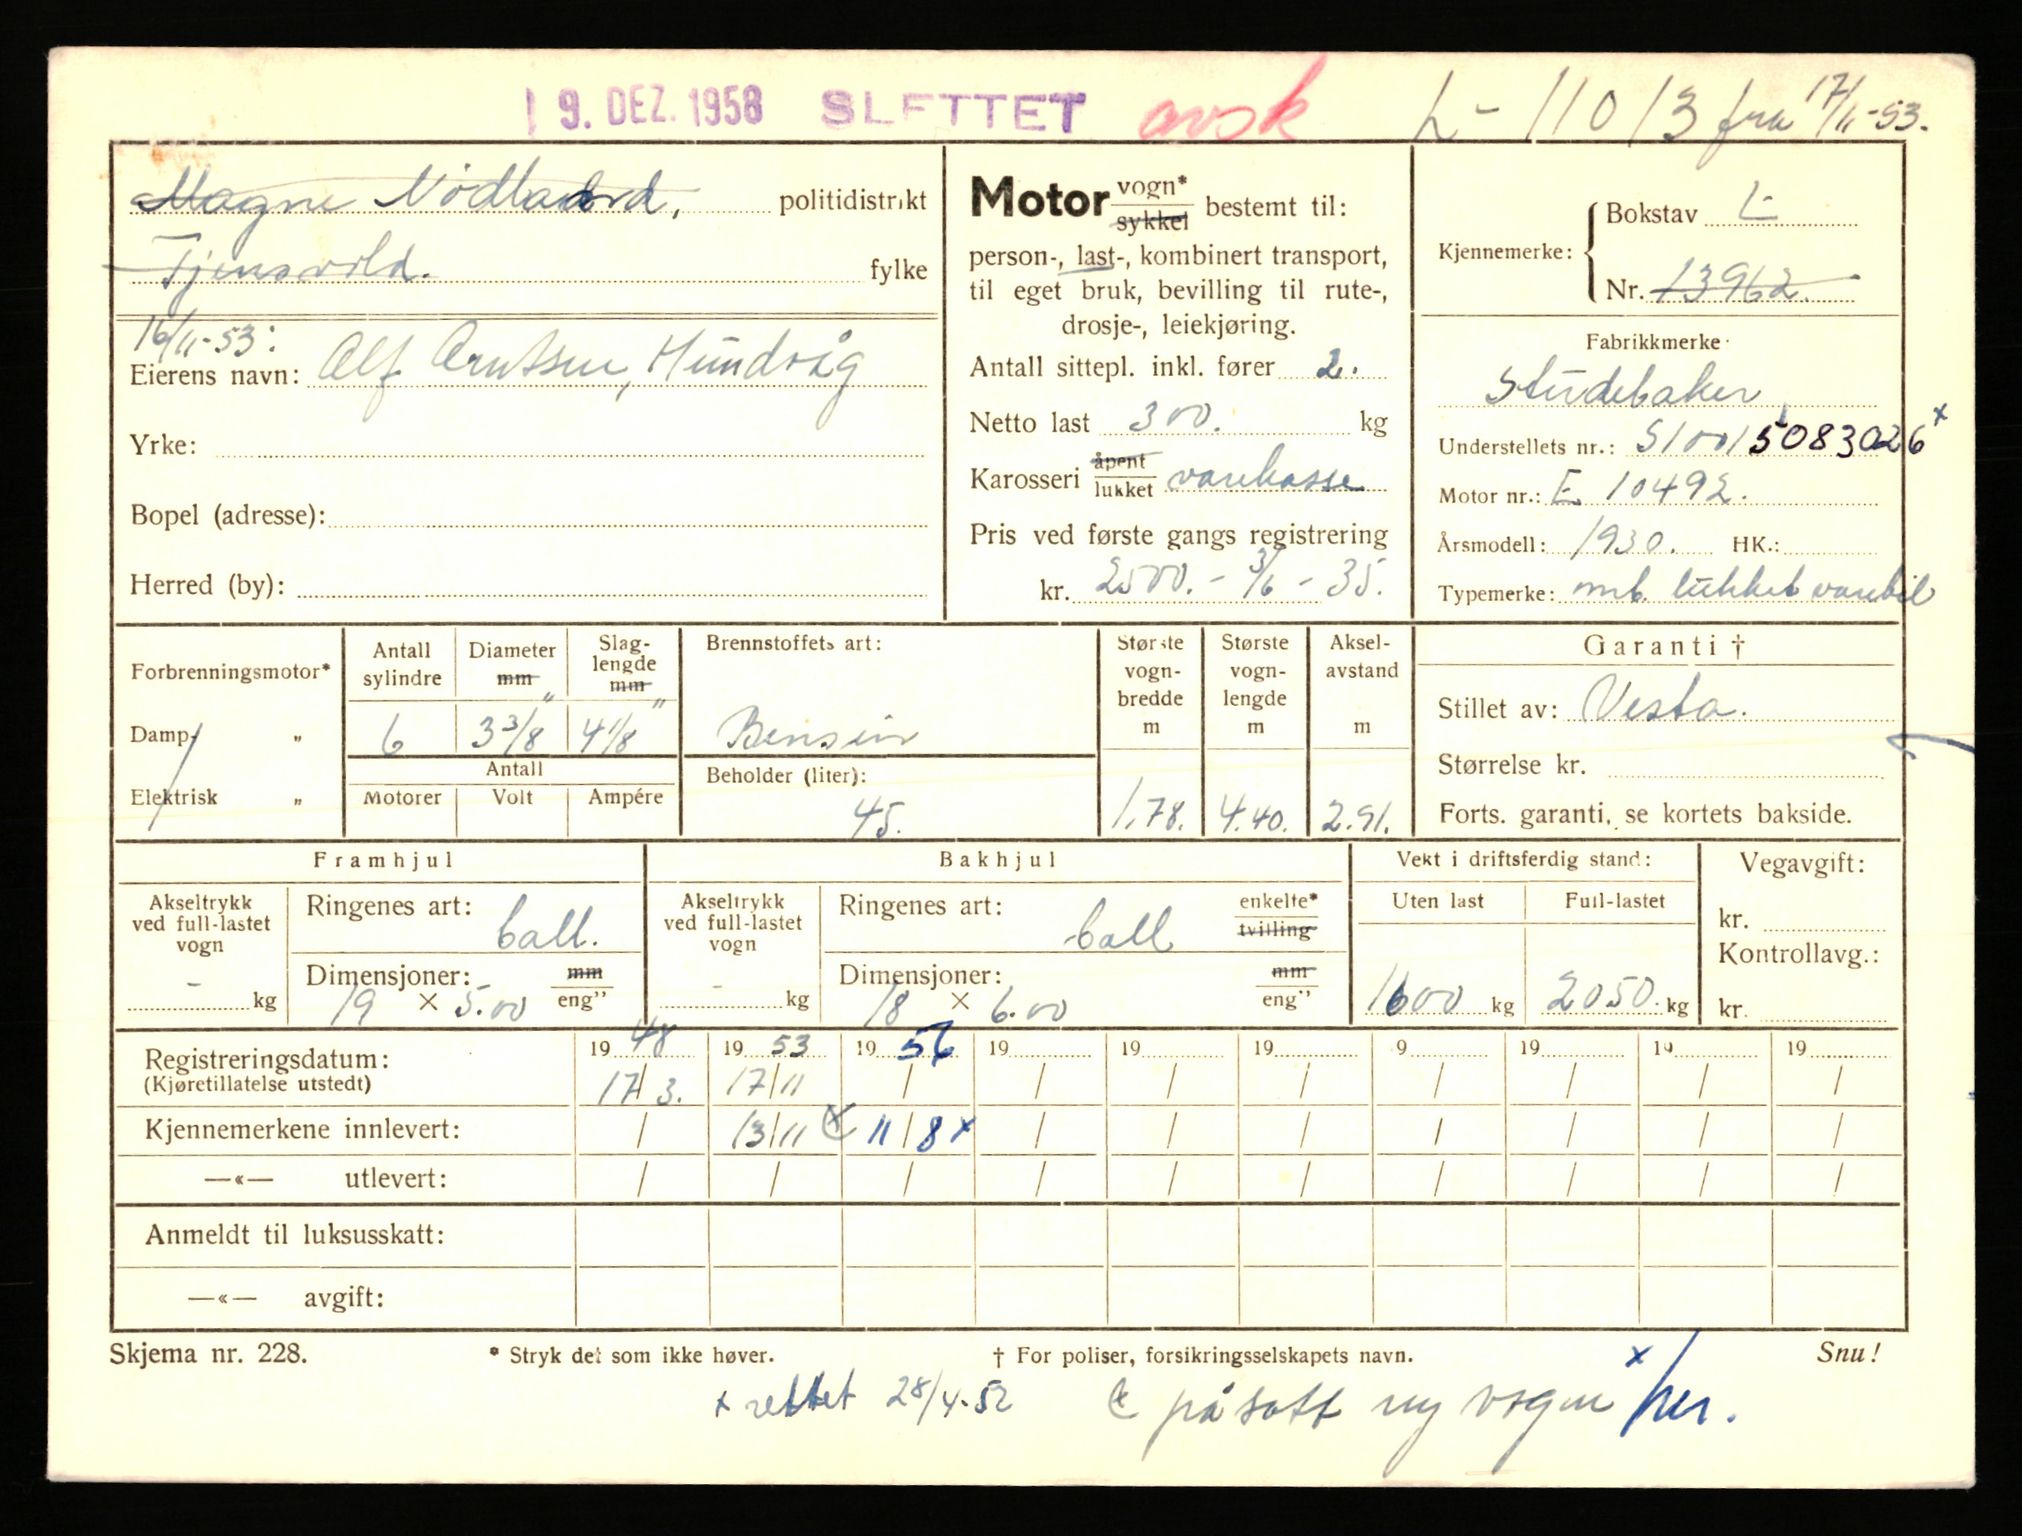 19. DEZ. 1958 SLETTET avsk L-11013 fra 17/11-53.
Magne Nödland, politidistrikt
Tjensvold. fylke
16/11-53:
Eierens navn: Alf Arntsen, Hundvåg
Yrke:
Bopel (adresse):
Herred (by):
Motor vogn* sykkel bestemt til:
person-, last-, kombinert transport,
til eget bruk, bevilling til rute-,
drosje-, leiekjøring.
Antall sittepl. inkl. fører 2.
Netto last 300. kg
Karosseri åpent lukket varekasse
Pris ved første gangs registrering
kr. 2500.- 3/6-35.
Kjennemerke: Bokstav L-
Nr. 13962.
Fabrikkmerke
Studebaker
Understellets nr.: 5083026 x
Motor nr.: E 10492.
Årsmodell: 1930. HK.:
Typemerke: mrk. lukket varebil
Forbrenningsmotor*
Damp- „
Elektrisk „
Antall sylindre Diameter mm" Slaglengde mm"
6 3 3/8 4 1/8
Antall
Motorer Volt Ampére
Brennstoffets art:
Bensin
Beholder (liter):
45.
Største vognbredde m
1,78.
Største vognlengde m
4.40.
Akselavstand m
2.91.
Garanti †
Stillet av: Vesta.
Størrelse kr.
Forts. garanti, se kortets bakside.
Framhjul
Akseltrykk ved full-lastet vogn - kg
Ringenes art: ball.
Dimensjoner: 19 × 5.00 mm eng"
Bakhjul
Akseltrykk ved full-lastet vogn - kg
Ringenes art: ball enkelte* tvilling
Dimensjoner: 18 × 6.00 mm eng"
Vekt i driftsferdig stand:
Uten last Full-lastet
1600 kg 2050. kg
Vegavgift:
kr.
Kontrollavg.:
kr.
Registreringsdatum: 1948 1953 1956 19 19 19 19 19 19 19
(Kjøretillatelse utstedt) 17/3. 17/11 / / / / / / / /
Kjennemerkene innlevert: / 13/11 11/8 x / / / / / / /
—«— utlevert: / / / / / / / / / /
Anmeldt til luksusskatt:
—«— avgift:
Skjema nr. 228. * Stryk det som ikke høver. † For poliser, forsikringsselskapets navn. Snu!
x rettet 28/4-52 påsatt ny vogn x her.